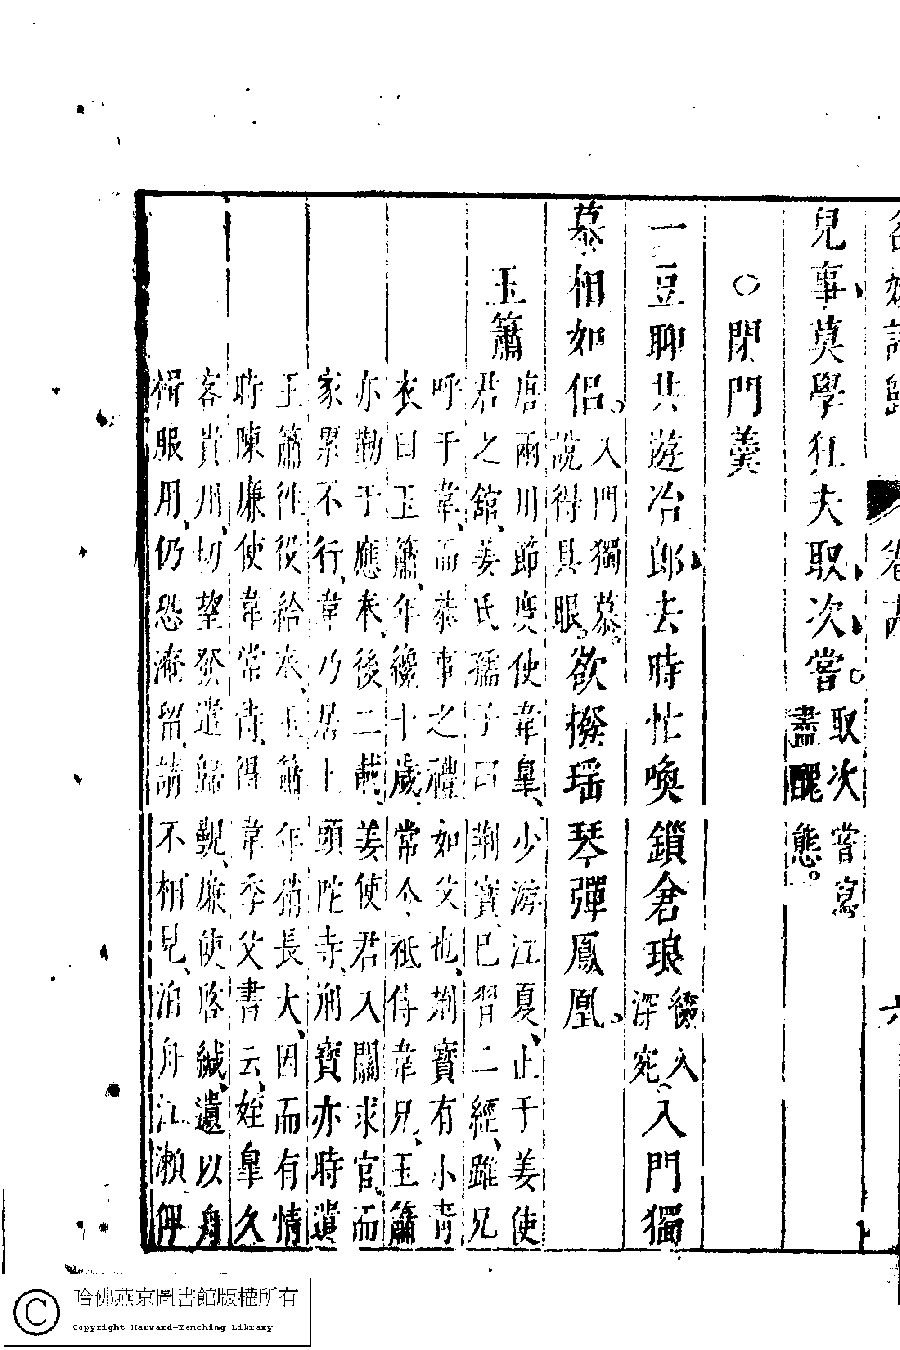 名媛詩歸 卷十六
兒事莫學狂夫取次嘗
取次嘗寫
盡醜態
○閉門羹
一豆聊共遊冶郎去時忙喚鎖倉琅
入
深宛
入門獨
慕相如侶
入門獨慕
說得具眼
欲撥瑶琴彈鳳凰
玉簫
唐兩川節度使韋皐少游江夏止于姜使
君之館姜氏孺子曰荆寶已習二經雖兄
呼于韋而恭事之禮如父也荆寶有小青
衣曰玉簫年纔十歲常令祗侍韋兄玉簫
亦勤于應奉後二載姜使君入關求官而
家累不行韋乃居止頭陀寺荆寶亦時遣
玉簫徃役給奉玉簫年稍長大因而有情
時陳廉使韋常侍得韋季父書云姪皐久
客貴州切望發遣歸覲廉使啓緘遺以舟
楫服用仍恐淹留請不相見泊舟江瀬俾
哈佛燕京圖書館版權所有
Copyright Harvard-Yenching Library